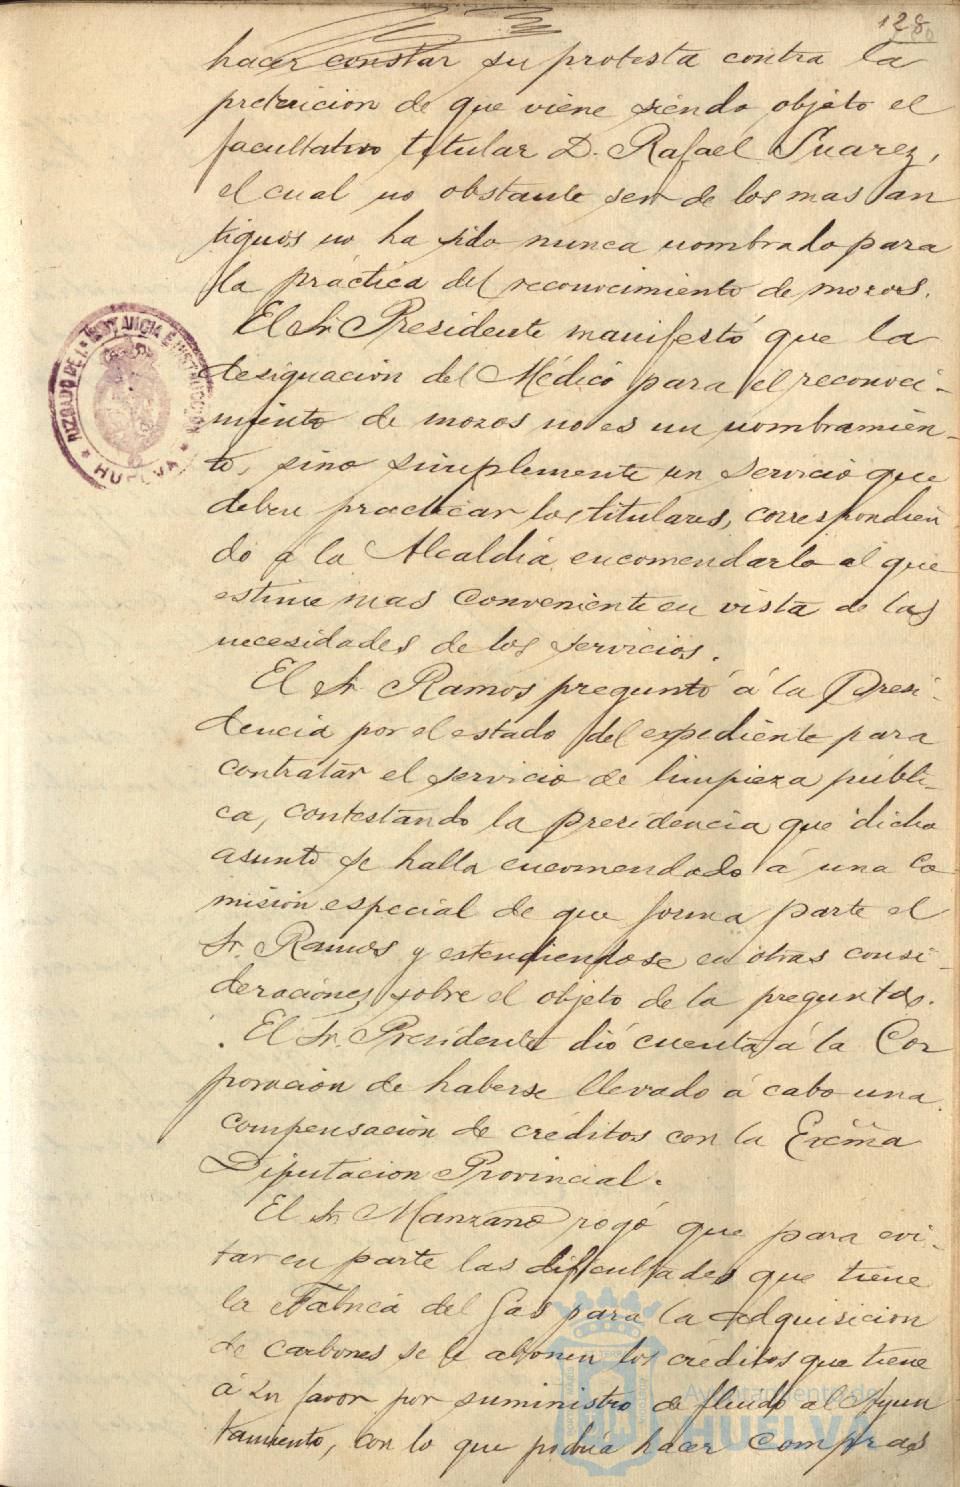 128
hacer constar su protesta contra la
pretericion de que viene siendo objeto el
facultativo titular D. Rafael Suarez,
el cual no obstante ser de los mas an
tiguos no ha sido nunca nombrado para
la práctica del reconocimiento de mozos.
El Sr. Presidente manifestó que la
designación del Médico para el reconoci-
miento de mozos no es un nombramien-
to, sino simplemente un servicio que
deben practicar los titulares, correspondien
do á la Alcaldia encomendarlo al que
estime mas conveniente en vista de las
necesidades de los servicios.
El Sr. Ramos preguntó á la Presi-
dencia por el estado del expediente para
contratar el servicio de limpieza públi-
ca, contestando la presidencia que dicho
asunto se halla encomendado á una Co
misión especial de que forma parte el
Sr. Ramos y estendiendose en otras consi-
deraciones sobre el objeto de la pregunta.
El Sr. Presidente dió cuenta á la Cor
poración de haberse llevado á cabo una
compensación de créditos con la Excma
Diputacion Provincial.
El Sr. Manzano rogó que para evi-
tar en parte las dificultades que tiene
la Fabrica del Gas para la adquisicion
de carbones se le abonen los créditos que tiene
á su favor por suministro de fluido al Ayun
tamiento, con lo que podria hacer compras
JUZGADO DE 1ª INSTANCIA E INSTRUCCION
* HUELVA *
Ayuntamiento de
HUELVA